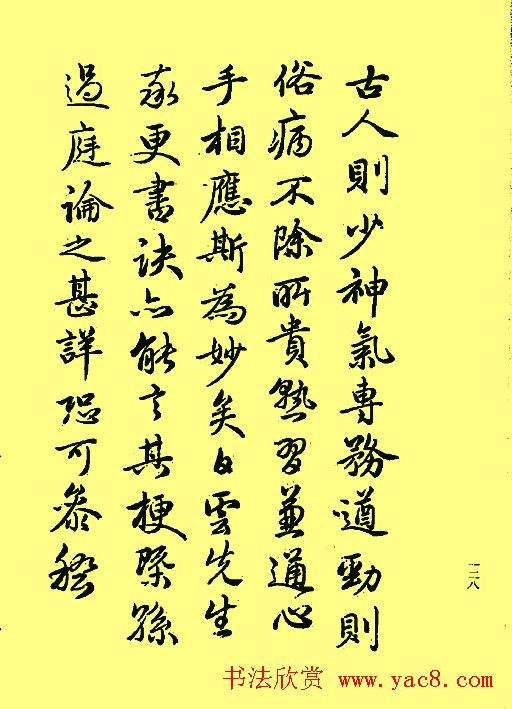 古人則少神氣專務遒勁則
俗病不除所貴熟習兼通心
手相應斯為妙矣白雲先生
率更書訣亦能言其梗槩孫
過庭論之甚詳可參稽
一二八
书法欣赏 www.yac8.com